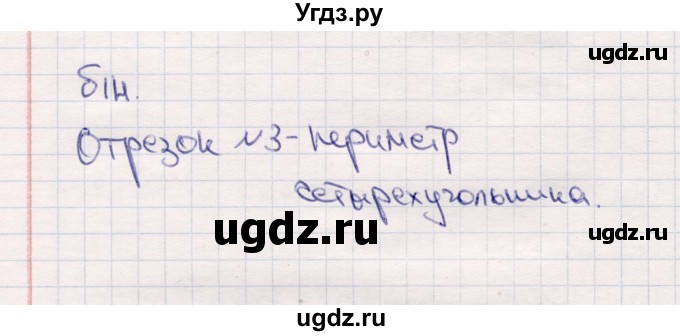 Угдз.ру
ugdz.ru
61н.
ugdz.ru
Отрезок №3-периметр
сетырехугольника.
ugdz.ru
ugdz.ru
ugdz.ru